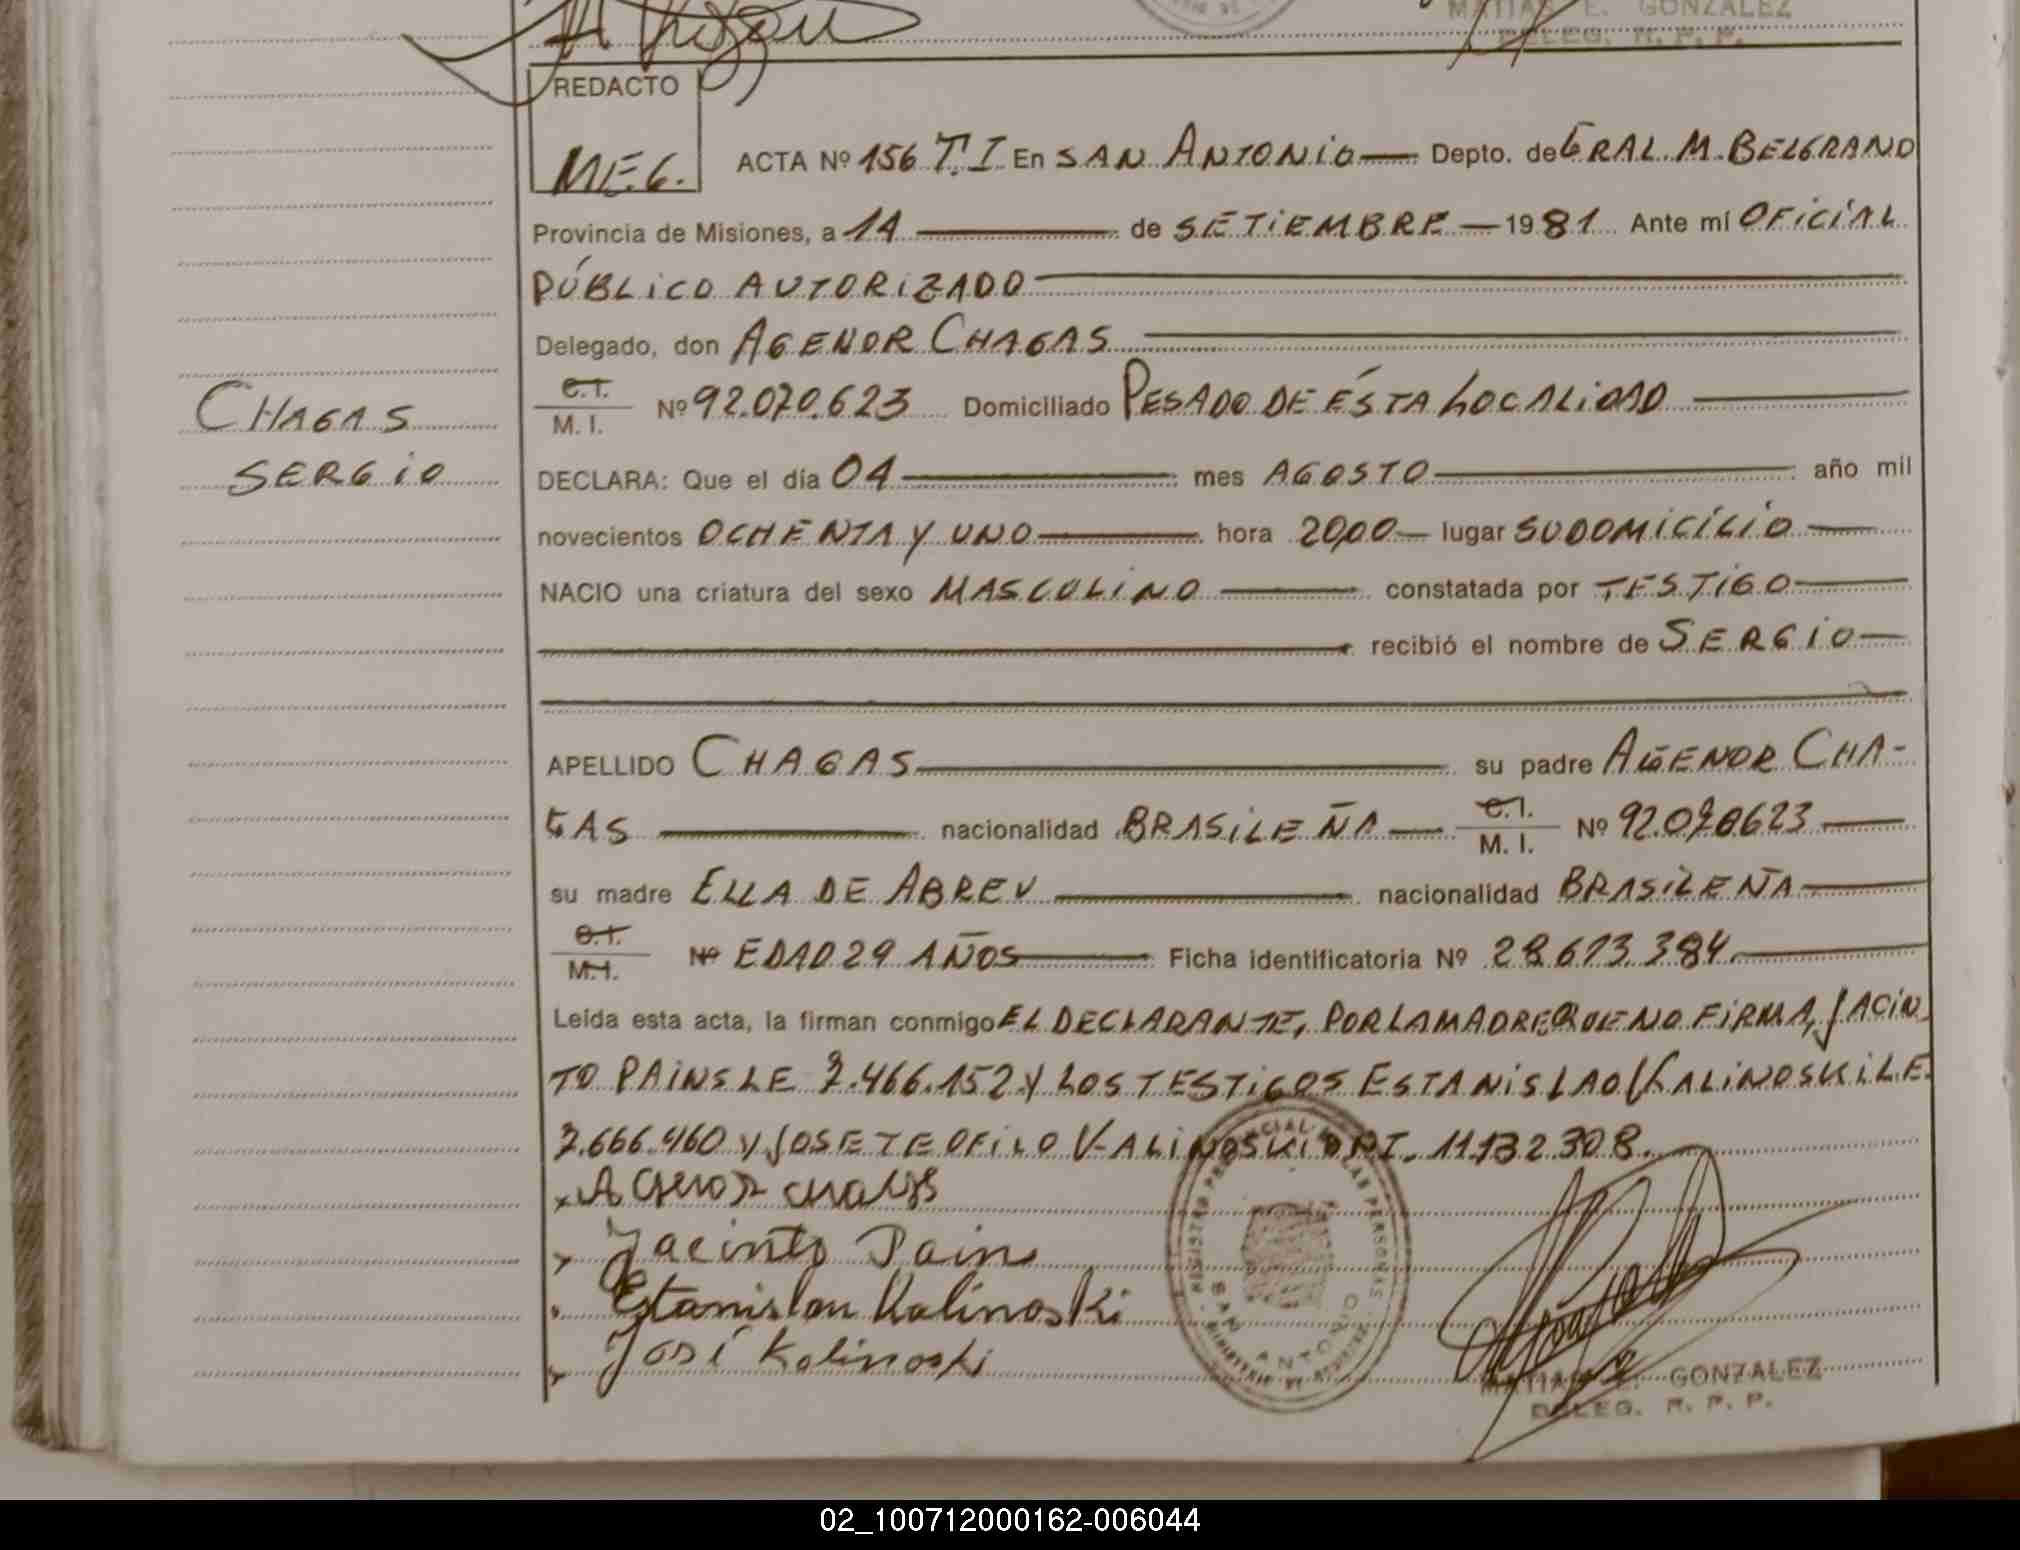 MATIAS E. GONZALEZ
DELEG. R. P. P.
REDACTO
M.E.G.
ACTA Nº 156 T.I En SAN ANTONIO Depto. de GRAL. M. BELGRANO
Provincia de Misiones, a 14 de SETIEMBRE 1981 Ante mí OFICIAL
PÚBLICO AUTORIZADO
Delegado, don AGENOR CHAGAS
C.I.
M. I. Nº 92.070.623 Domiciliado PESADO DE ÉSTA LOCALIDAD
CHAGAS
SERGIO
DECLARA: Que el día 04 mes AGOSTO año mil
novecientos OCHENTA Y UNO hora 20,00 lugar SU DOMICÍLIO
NACIO una criatura del sexo MASCULINO constatada por TESTIGO
recibió el nombre de SERGIO
APELLIDO CHAGAS su padre AGENOR CHA-
GAS nacionalidad BRASILEÑA C.I. M. I. Nº 92.070623
su madre ELLA DE ABREU nacionalidad BRASILEÑA
C.I.
M.I. Nº EDAD 29 AÑOS Ficha identificatoria Nº 28.673.384
Leída esta acta, la firman conmigo EL DECLARANTE, POR LA MADRE QUE NO FIRMA, JACIN
TO PAINS LE 7.466.152 Y LOS TESTIGOS ESTANISLAO KALINOSKI L.E.
7.666.460 Y JOSE TEOFILO KALINOSKI DNI. 11.132.308.
Agenor chagas
Jacinto Pains
Estanislau Kalinoski
José Kalinoski
REGISTRO PROVINCIAL DE LAS PERSONAS
SAN ANTONIO
MATIAS E. GONZALEZ
DELEG. R. P. P.
02_100712000162-006044